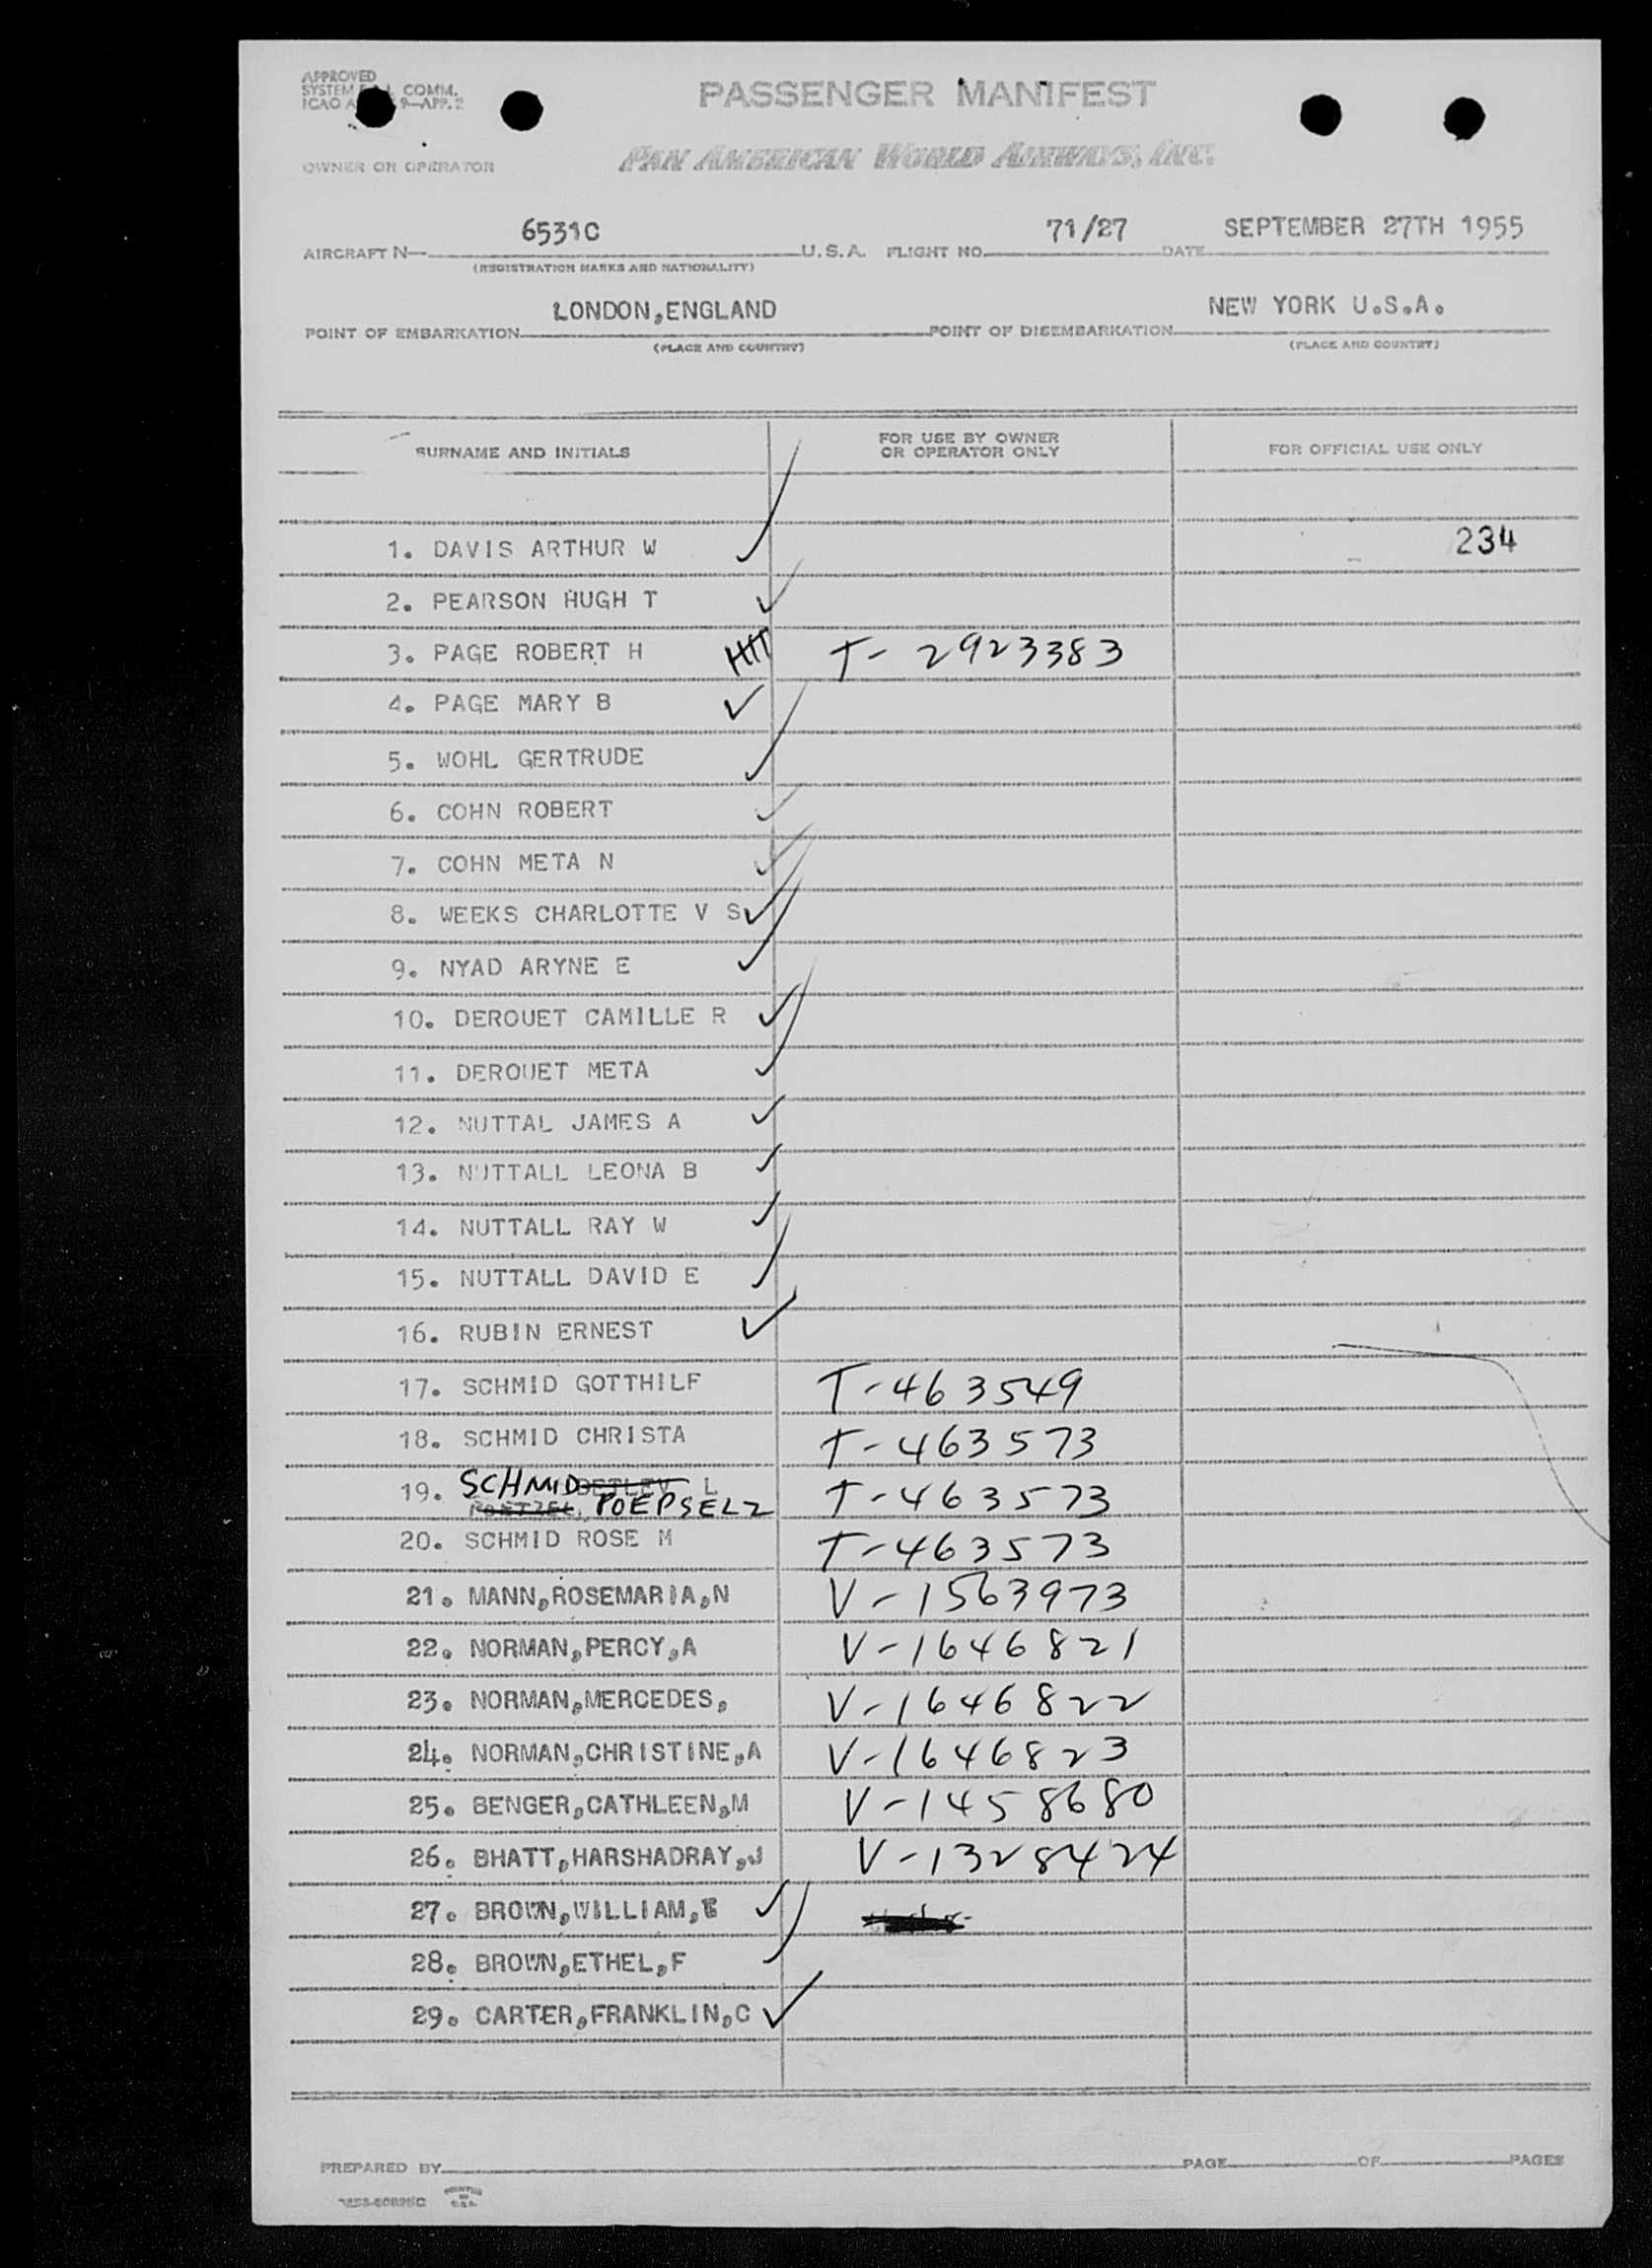 APPROVED
SYSTEM COMM.
ICAO 9—APP. 2
PASSENGER MANIFEST
OWNER OR OPERATOR PAN AMERICAN WORLD AIRWAYS, INC.
AIRCRAFT N— 6531C U.S.A. FLIGHT NO. 71/27 DATE SEPTEMBER 27TH 1955
(REGISTRATION MARKS AND NATIONALITY)
POINT OF EMBARKATION LONDON,ENGLAND POINT OF DISEMBARKATION NEW YORK U.S.A.
(PLACE AND COUNTRY) (PLACE AND COUNTRY)
SURNAME AND INITIALS FOR USE BY OWNER OR OPERATOR ONLY FOR OFFICIAL USE ONLY
1. DAVIS ARTHUR W 234
2. PEARSON HUGH T
3. PAGE ROBERT H T- 2923383
4. PAGE MARY B
5. WOHL GERTRUDE
6. COHN ROBERT
7. COHN META N
8. WEEKS CHARLOTTE V S
9. NYAD ARYNE E
10. DEROUET CAMILLE R
11. DEROUET META
12. NUTTAL JAMES A
13. NUTTALL LEONA B
14. NUTTALL RAY W
15. NUTTALL DAVID E
16. RUBIN ERNEST
17. SCHMID GOTTHILF T-463549
18. SCHMID CHRISTA T-463573
19. SCHMID DETLEV L T-463573
POEPSELZ
20. SCHMID ROSE M T-463573
21. MANN,ROSEMARIA,N V-1563973
22. NORMAN,PERCY,A V-1646821
23. NORMAN,MERCEDES, V-1646822
24. NORMAN,CHRISTINE,A V-1646823
25. BENGER,CATHLEEN,M V-1458680
26. BHATT,HARSHADRAY,J V-1328424
27. BROWN,WILLIAM,E
28. BROWN,ETHEL,F
29. CARTER,FRANKLIN,C
PREPARED BY PAGE OF PAGES